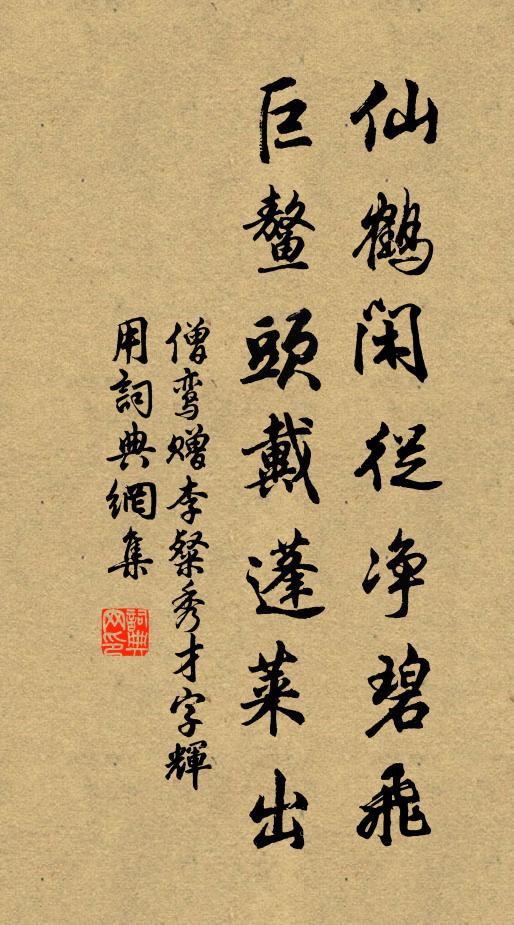 仙鶴閑從净碧飛
巨鰲頭戴蓬萊出
僧鸾贈李粲秀才字輝
用詞典網集
詞典
网印